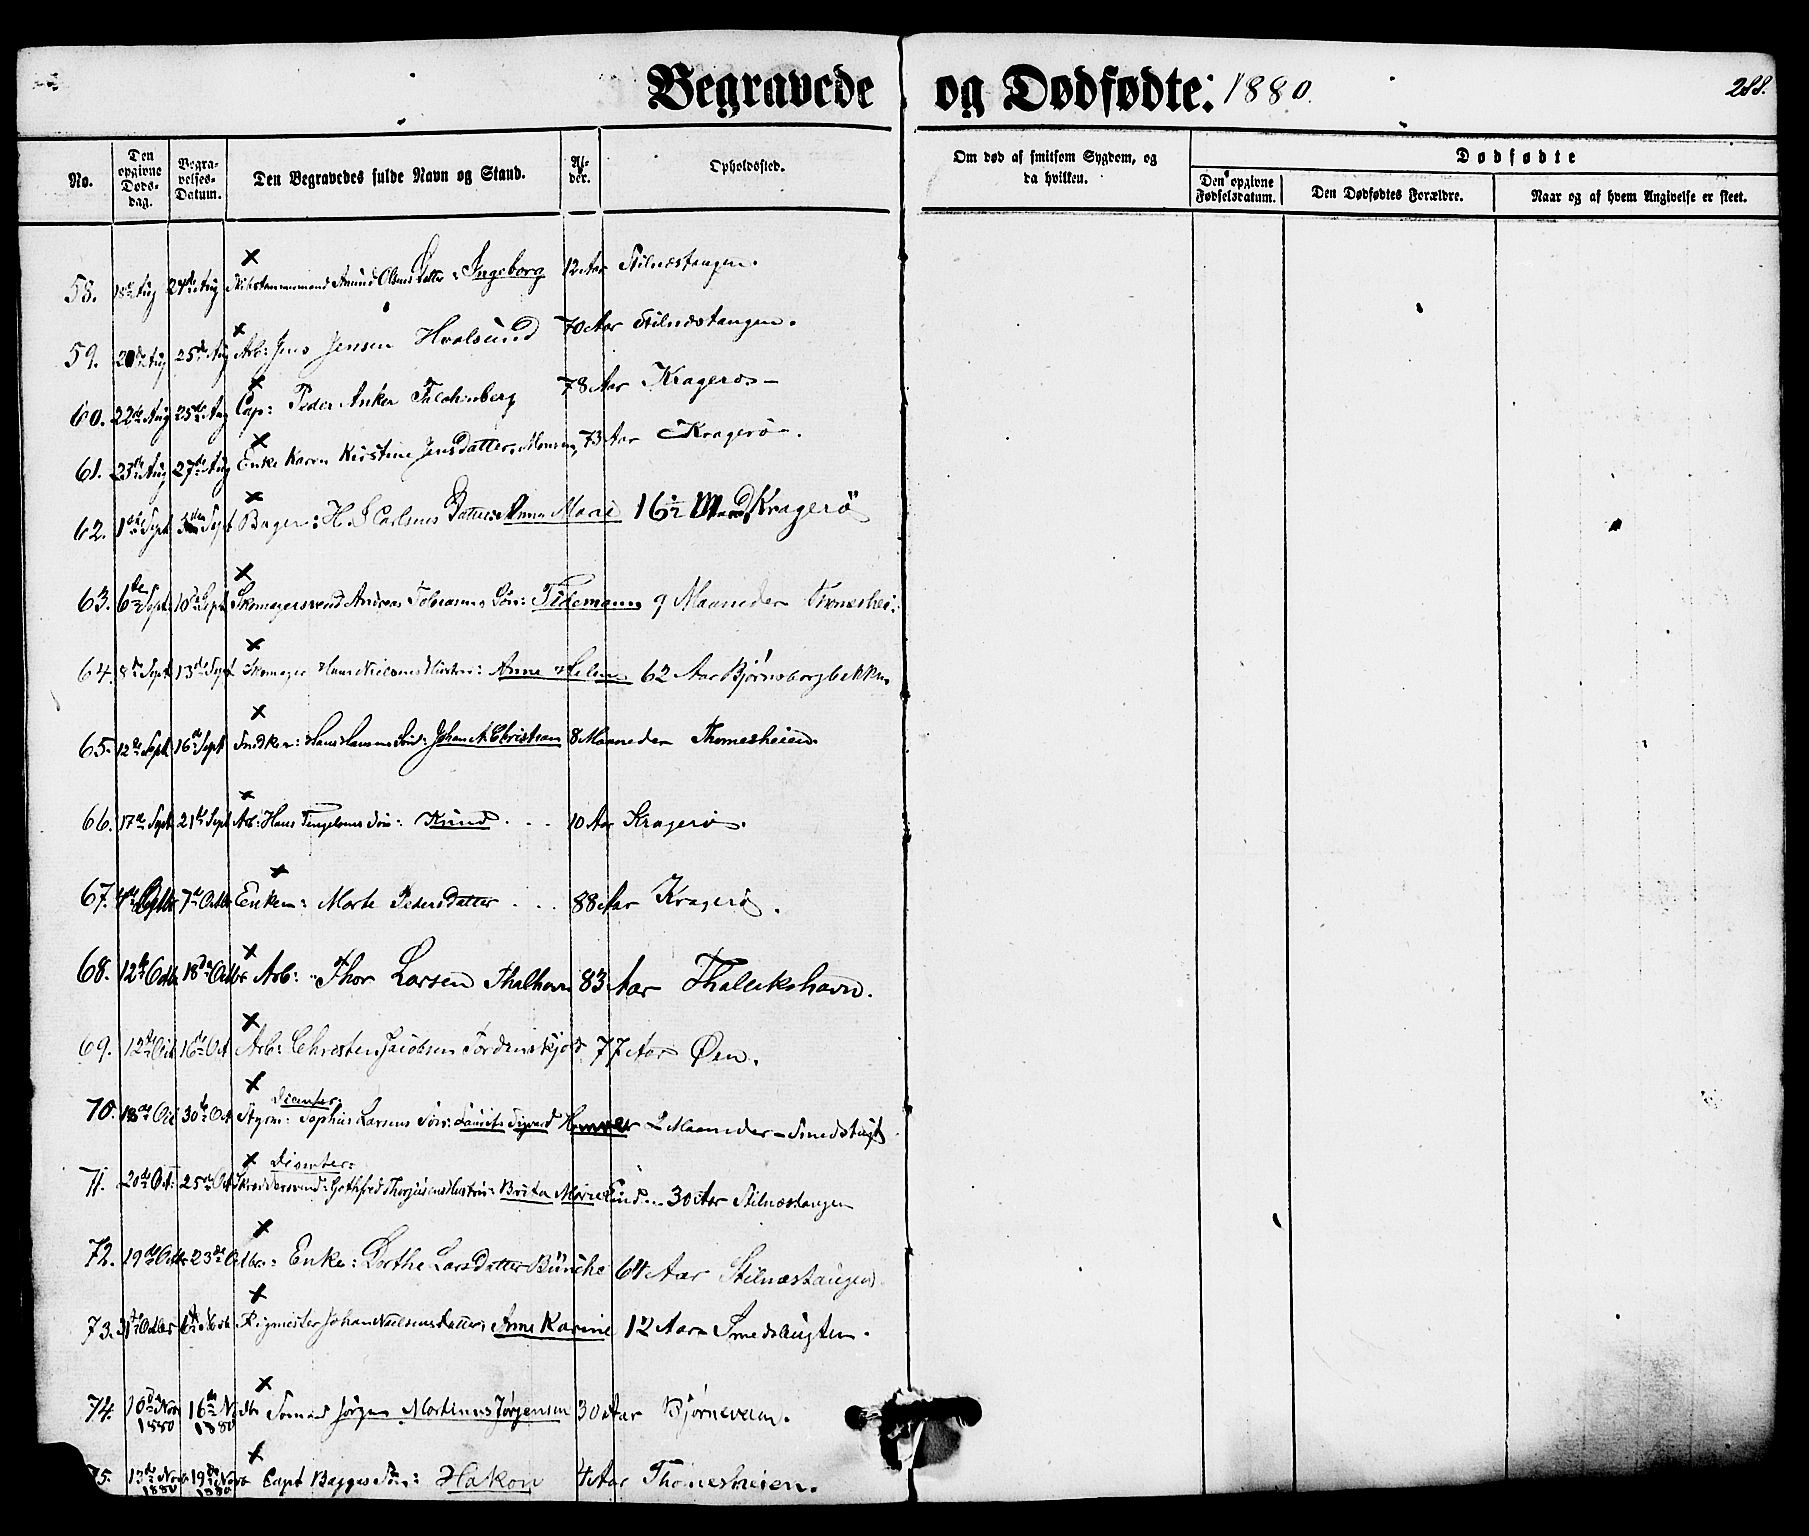 Begravede og Dødfødte: 1880. 288.
No. Den opgivne Døds-dag. Begra-velses-Datum. Den Begravedes fulde Navn og Stand. Al-der. Opholdssted. Om død af smitsom Sygdom, og da hvilken. Dødfødte
Den opgivne Fødselsdatum. Den Dødfødtes Forældre. Naar og af hvem Angivelse er skeet.
58. 18de Aug 24de Aug Amund Olsens Datter: Ingeborg 12 Aar Stilnæstangen.
59. Aug 25de Aug Arb: Jens Jensen Hvalsund 70 Aar Stilnæstangen.
60. 22de Aug 25de Aug Cap: Peder Anker 78 Aar Kragerø
61. 23de Aug 27de Aug Enke Karen Kirstine JensDatter 73 Aar Kragerø.
62. 1ste Sept 3den Sept Bager: H. J Carlsens Datter: Anna Marie 16 1/2 Maaned Kragerø
63. 6te Sept 10de Sept Skomagersvend Andreas Søn: Tidemann 9 Maaneder
64. 8de Sept 13de Sept Skomager Hans Nielsens Hustru: Anne Helene 62 Aar Bjørnsborgbekken
65. 12te Sept 16de Sept Snedker: Hans Hansens Søn: Johan A. Christian 8 Maaneder Thomesheien
66. 17de Sept 21de Sept Arb: Hans Søn: Knud 10 Aar Kragerø.
67. 4de 7de Octbr Enken: Marte PedersDatter 88 Aar Kragerø.
68. 12te Octbr 18de Octbr Arb: Thor Larsen Thalhavn 83 Aar Thallakshavn.
69. 12te Oct 16de Oct Arb: Christen Jacobsen Tordenskjold 77 Aar Øen.
Disenter:
70. 18de Oct 30te Oct Styrm: Sophus Larsens Søn: Laurits Sigvard 2 Maaneder Smedsbugt
Disenter:
71. 20de Oct: 25de Oct Skreddersvend: Gothfred Hustru: Brita Marie Lind 30 Aar Stilnæstangen
72. 19de Octbr 23de Octbr: Enke: Dorthe LarsDatter 64 Aar Stilnæstangen
73. 31te Octbr 6te Novb. Rigmester Johan Nielsens datter: Anne Karine 12 Aar Smedsbugten.
74. 10de Nov 1880 16de Novbr 1880 Sømand Jørgen Martinus Jørgensen 30 Aar Bjørneveien.
75. 13de Nov 1880 19de Nov 1880 Capt Bagges Søn: Hakon 4 Aar Thomesheien.